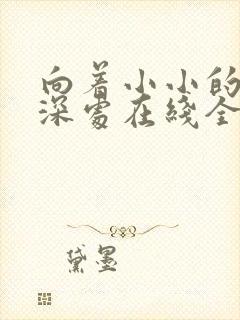 向着小小的
深处在线全
黛墨